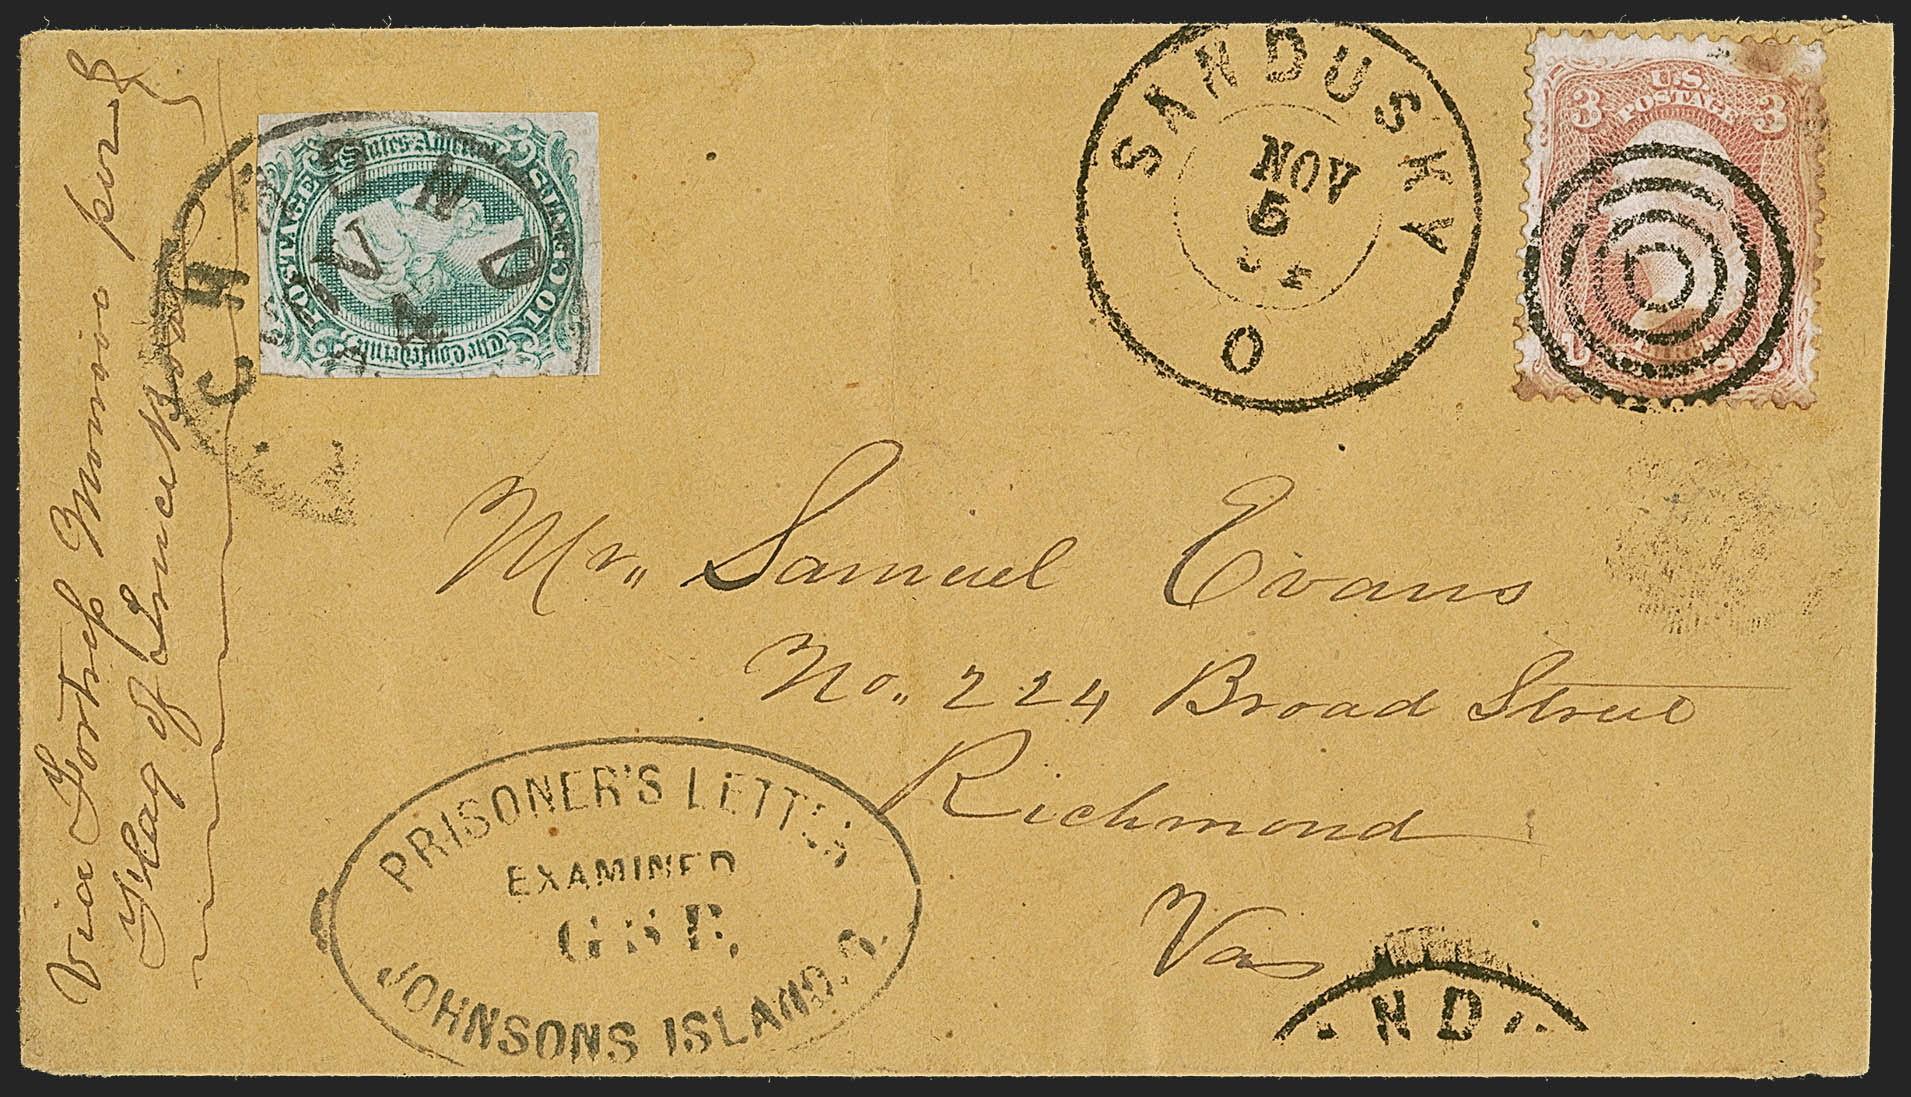 Via Fortress Monroe per
Flag of Truce Boat
POSTAGE
The Confederate States America
10
RICHMOND
VA
SANDUSKY
NOV
5
O
U.S.
POSTAGE
3 3
Mr. Samuel Evans
No. 224 Broad Street
Richmond
Va
PRISONER'S LETTER
EXAMINED
JOHNSONS ISLAND. O.
ND